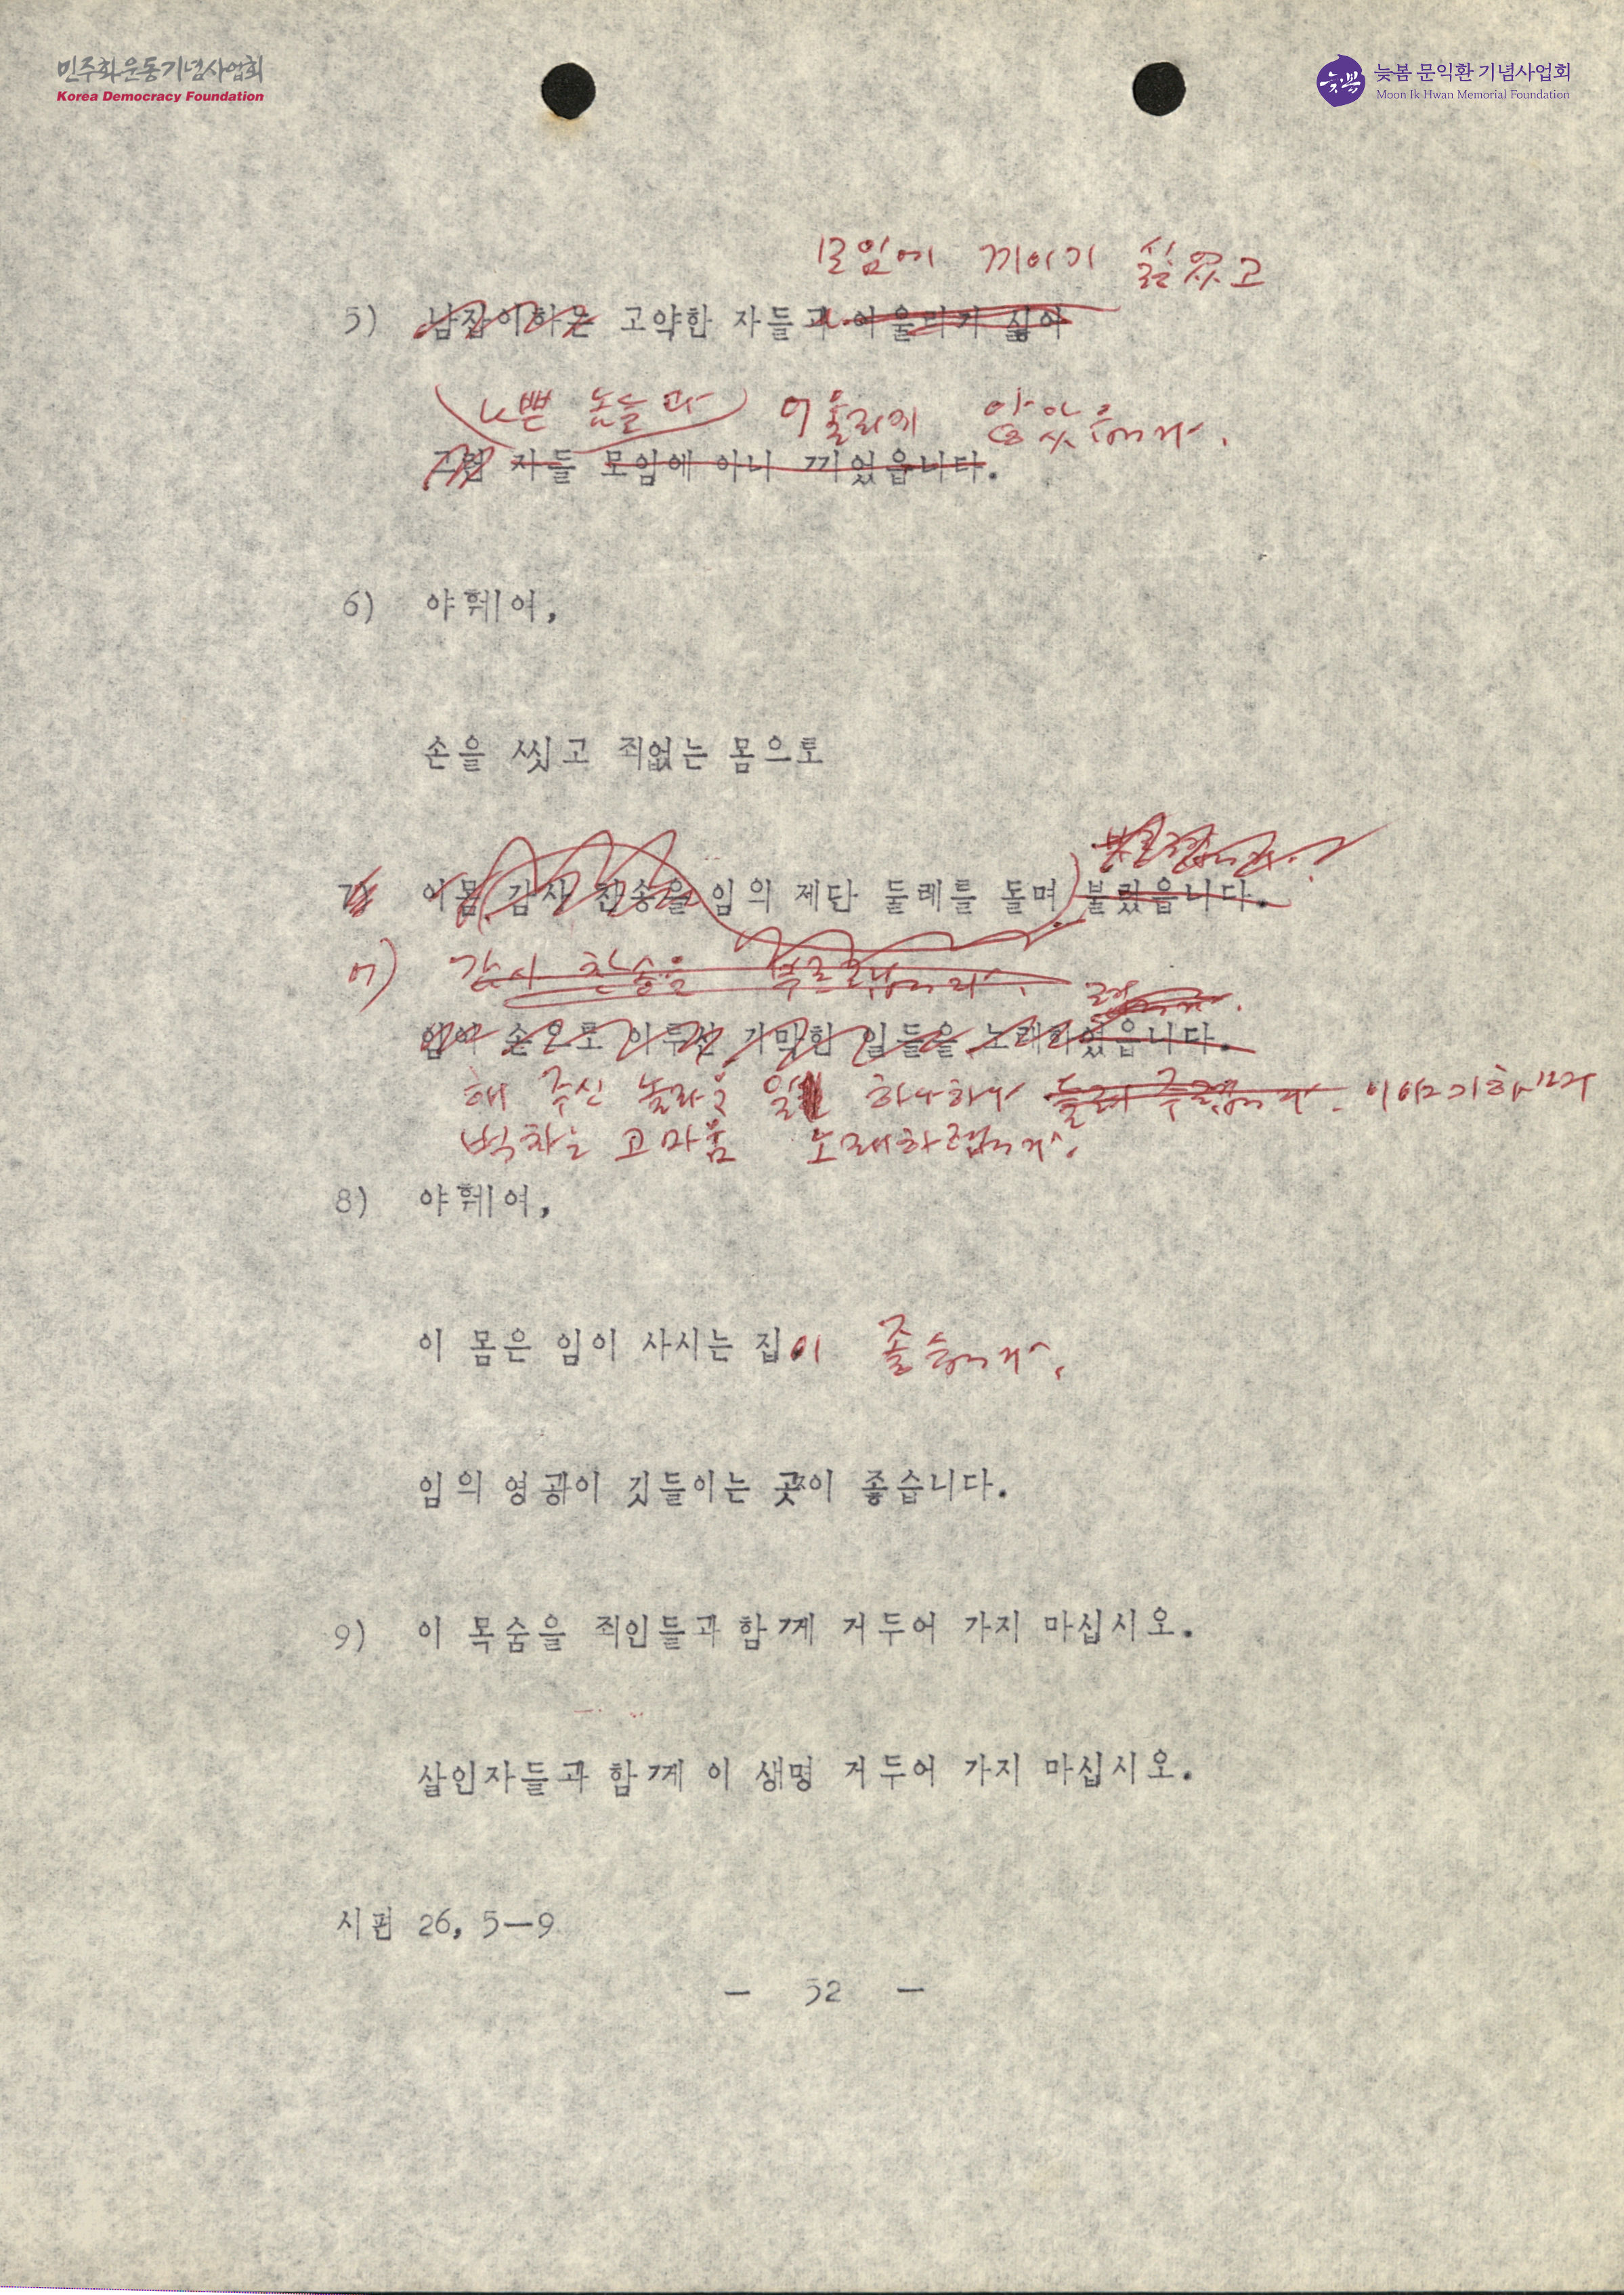 민주화운동기념사업회
Korea Democracy Foundation
늦봄 문익환 기념사업회
Moon Ik Hwan Memorial Foundation
모임에 끼이기 싫었고
5) 고약한 자들과 어울리기 싫어
나쁜 놈들과 어울리지 않았읍니다.
그런 자들 모임에 아니 끼었읍니다.
6) 야훼여,
손을 씻고 죄없는 몸으로
7) 이몸 감사 찬송을 임의 제단 둘레를 돌며 불렀읍니다.
7) 감사 찬송을
임이 손으로 이루신 기막힌 일들을 노래하였읍니다.
해 주신 놀라운 일 하나하나 이야기하며
벅차는 고마움 노래하렵니다.
8) 야훼여,
이 몸은 임이 사시는 집이 좋습니다.
임의 영광이 깃들이는 곳이 좋습니다.
9) 이 목숨을 죄인들과 함께 거두어 가지 마십시오.
살인자들과 함께 이 생명 거두어 가지 마십시오.
시편 26, 5—9
— 52 —